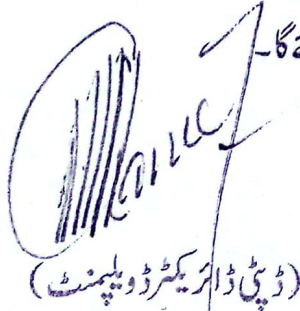 گا۔
(ڈپٹی ڈائریکٹر ڈویلپمنٹ)